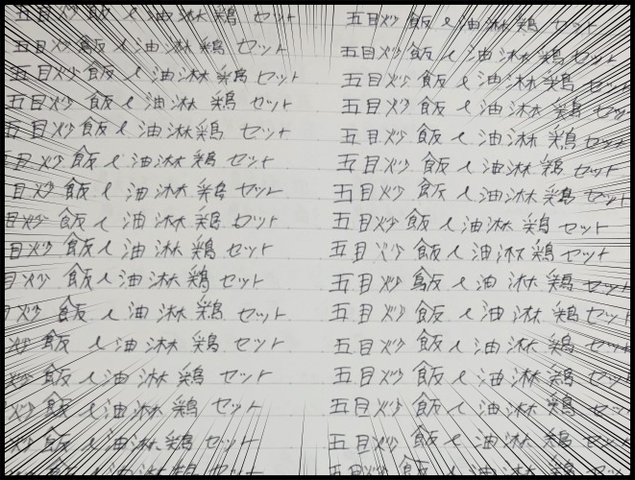 五目炒飯と油淋鶏セット
五目炒飯と油淋鶏セット
五目炒飯と油淋鶏セット
五目炒飯と油淋鶏セット
五目炒飯と油淋鶏セット
五目炒飯と油淋鶏セット
目炒飯と油淋鶏セット
目炒飯と油淋鶏セット
目炒飯と油淋鶏セット
目炒飯と油淋鶏セット
炒飯と油淋鶏セット
炒飯と油淋鶏セット
炒飯と油淋鶏セット
炒飯と油淋鶏セット
炒飯と油淋鶏セット
炒飯と油淋鶏セット
五目炒飯と油淋鶏セット
五目炒飯と油淋鶏セット
五目炒飯と油淋鶏セット
五目炒飯と油淋鶏セット
五目炒飯と油淋鶏セット
五目炒飯と油淋鶏セット
五目炒飯と油淋鶏セット
五目炒飯と油淋鶏セット
五目炒飯と油淋鶏セット
五目炒飯と油淋鶏セット
五目炒飯と油淋鶏セット
五目炒飯と油淋鶏セット
五目炒飯と油淋鶏セット
五目炒飯と油淋鶏セット
五目炒飯と油淋鶏セット
五目炒飯と油淋鶏セット